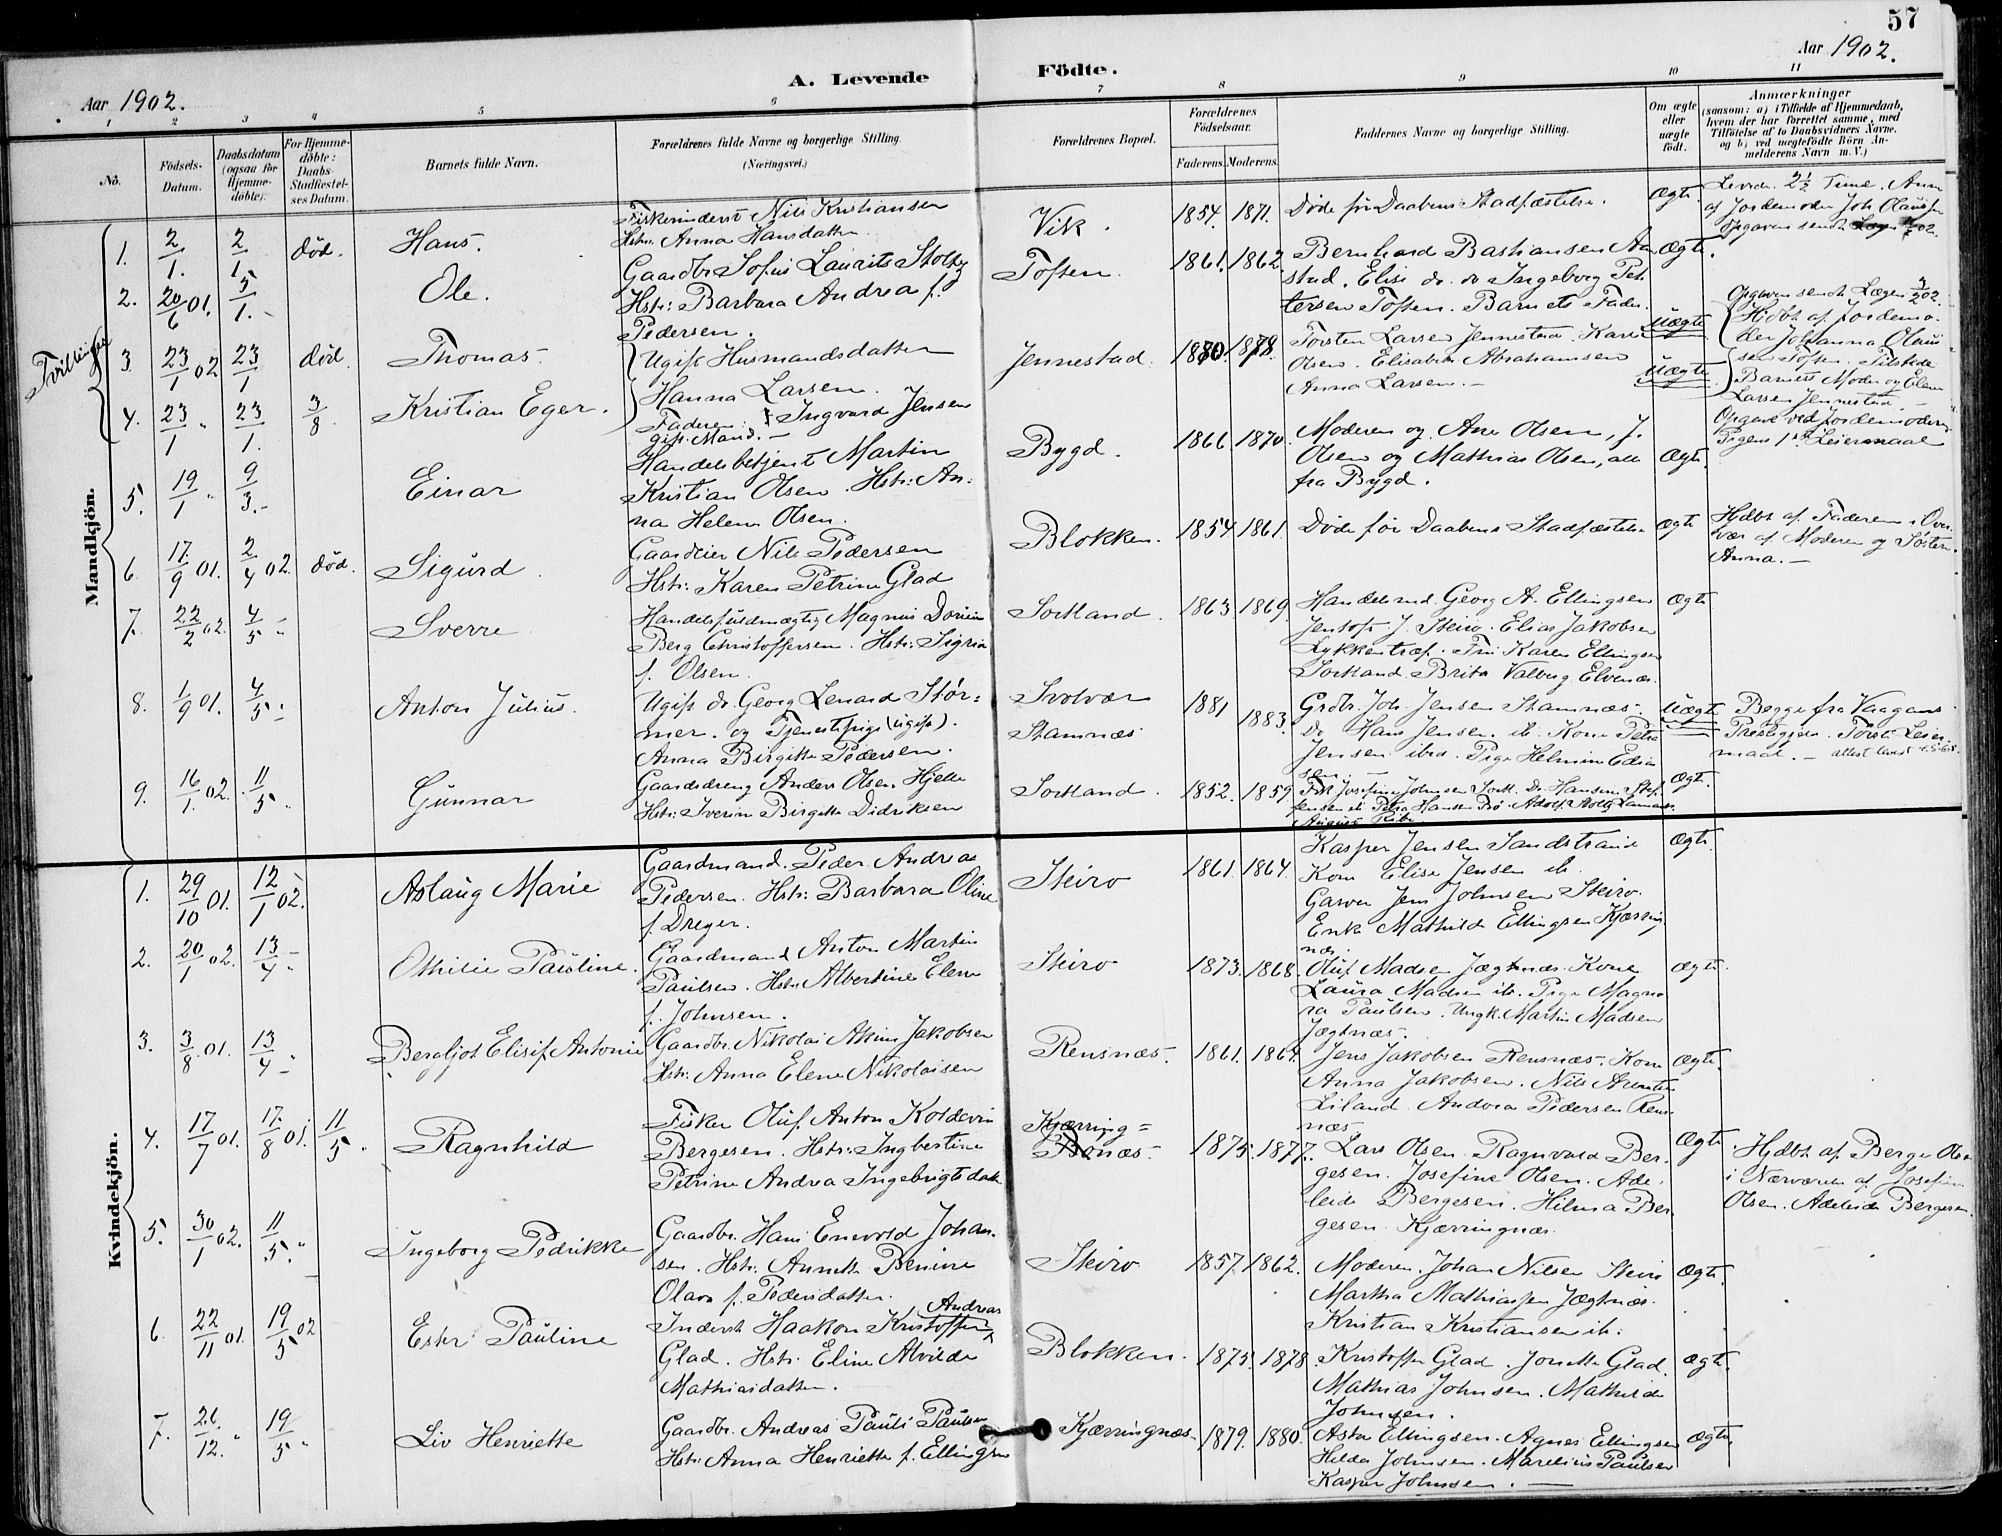 57
Aar 1902.
A. Levende Födte.
Aar 1902.
1 2 3 4 5 6 7 8 9 10 11
No.
Födsels-Datum.
Daabsdatum (ogsaa for Hjemme-döbte).
For Hjemme-döbte: Daabs-Stadfæstel-ses Datum.
Barnets fulde Navn.
Forældrenes fulde Navne og borgerlige Stilling. (Næringsvei.)
Forældrenes Bopæl.
Forældrenes Födselsaar.
Faderens. Moderens.
Faddernes Navne og borgerlige Stilling.
Om ægte eller uægte födt.
Anmærkninger
(saasom: a) i Tilfælde af Hjemmedaab,
hvem der har forrettet samme, med
Tilföielse af to Daabsvidners Navne.
og b) ved uægtefödte Börn An-
melderens Navn m.V.)
Mandkjön.
1. 2/1. 2/1. død. Hans.
Fiskerinderst Nils Kristiansen
Hstr. Anna Hansdatter
Vik. 1854. 1871. Døde før Daabens Stadfæstelse. Ægte.
Levede 2½ Time. Anm
af Jordemoder Joh. Olaussen
Opgaven sendt
2. 20/6 01. 5/1. Ole.
Gaardbr. Sofus Laurits Stoltz
Hstr: Barbara Andrea f.
Pedersen.
Toften. 1861. 1862.
Bernhard Bastiansen
stad. Elise do. do Ingeborg Pet-
tersen Toften. Barnets Fader.
Ægte.
Tvillinger
3. 23/1 02 23/1 død Thomas.
4. 23/1 " 23/1. 3/8. Kristian Eger.
Ugift Husmandsdatter
Hanna Larsen.
Faderen: Ingvard Jensen
gift Mand. -
Jennestad. 1880. 1878.
Torsten Larsen Jennestad. Karen
Olsen. Elisabeth Abrahamsen
Anna Larsen. -
Uægte
Uægte
Opgaven sendt Lægen 3/2 02.
Hjdbt. af Jordemo-
der Johanna Olaus-
sen Toften. Tilstede
Barnets Moder og Elen
Larsen Jennestad. -
Opgave ved Jordemoderen
Pigens 1ste Leiermaal
5. 19/1 " 9/3.- Einar
Handelsbetjent Martin
Kristian Olsen. Hstr: An-
na Helene Olsen.
Bygd. 1866. 1870.
Moderen og Ane Olsen, J.
Olsen og Mathias Olsen, alle
fra Bygd.
Ægte.
6. 17/9 01. 2/4 02. død. Sigurd.
Gaardeier Nils Pedersen
Hstr: Karen Petrine Glad
Blokken. 1854. 1861. Døde før Daabens Stadfæstelse Ægte
Hjdbt. af Faderen i Over-
vær af Moderen og Søsteren
Anna. -
7. 22/2 02. 4/5 " Sverre
Handelsfuldmægtig Magnus Dorius
Berg Christoffersen. Hstr: Sigrid
f. Olsen.
Sortland. 1863. 1869.
Handelsmd. Georg A. Ellingsen
Jentoft J. Steiro. Elias Jakobsen
Lykkentræf. Fru Karen Ellingsen
Sortland. Brita Valberg Elvenæs.
Ægte
8. 1/9 01. 4/5 " Anton Julius.
Ugift do. Georg Lenard Stør-
mer. og Tjenestepige (ugift).
Anna Birgitte Pedersen.
Svolvær
Stamnæs 1881 1883.
Grdbr. Joh. Jensen Stamnæs.
Do Hans Jensen. ib. Kone Petra
Jensen ibid. Pige Helmine Edin
sen. -
Uægte
Begge fra Vaagans
Præstegjeld. Første Leier-
maal. -
9. 16/1. 02. 11/5 " Gunnar
Gaardsdreng Anders Olsen Hjelle
Hstr: Iverine Birgitte Didriksen
Sortland. 1852. 1859.
Frk Josefine Johnsen Sortl. Do Hansine
Petra Hansen Bø. Adolf
August
Ægte.
Kvindekjön.
1. 29/10 01. 12/1 02. Aslaug Marie
Gaardmand. Peder Andreas
Pedersen. Hstr: Barbara Oline
f. Dreyer.
Steiro 1861. 1864.
Kasper Jensen Sandstrand
Kone Elise Jensen ib.
Garver Jens Johnsen Steiro.
Enke Mathilde Ellingsen Kjærring
næs.
Ægte.
2. 20/1 02. 13/4 " Othilie Pauline.
Gaardmand Anton Martin
Paulsen. Hstr. Albertine Elene
f. Johnsen.
Steiro 1873. 1868.
Oluf Madsen Jægtnæs. Kone
Laura Madsen ib. Pige Magna
na Paulsen. Ungk. Martin Madsen
Jægtnæs.
Ægte.
3. 3/8 01. 13/4 " Bergljot Elisif Antonie
Gaardbr. Nikolai Akim Jakobsen
Hstr: Anna Elene Nikolaisen
Rensnæs. 1861. 1864.
Jens Jakobsen Rensnæs. Kone
Anna Jakobsen. Nils Arentsen
Liland. Andrea Pedersen Rens-
næs.
Ægte.
4. 17/7 01. 17/8 01. 11/5. Ragnhild
Fisker Oluf Anton Koldevin
Bergesen. Hstr: Ingbertine
Petrine Andrea Ingebrigtsdatt
Kjærring-
næs. 1875. 1877.
Lars Olsen. Ragnvald Ber-
gesen. Josefine Olsen. Ade-
leide Bergesen. Hilma Ber-
gesen. Kjærringnæs.
Ægte
Hjdbt. af Berge Olsen
i Nærværen af Josefine
Olsen. Adeleide Bergesen.
5. 30/1 02. 11/5. " Ingeborg Pedrikke
Gaardbr. Hans Enevold Johan-
sen. Hstr. Annette Benine
Olava f. Pedersdatter.
Steiro 1857. 1862.
Moderen. Johan Nilsen Steiro
Martha Mathiassen Jægtnæs.
Kristian Kristiansen ib.
Ægte.
6. 22/11 01. 19/5 02 Ester Pauline
Inderst Haakon Kristoffer Andreas
Glad. Hstr. Eline Alvilde
Mathiasdatter.
Blokken. 1875. 1878.
Kristoffer Glad. Jonette Glad.
Mathias Johnsen. Mathilde
Johnsen.
Ægte.
7. 26/12. " 19/5 " Liv Henriette
Gaardbr. Andreas Pauli Paulsen
Hstr: Anna Henriette f. Ellingsen
Kjærringnæs. 1879. 1880.
Asta Ellingsen. Agnes Ellingsen
Hilda Johnsen. Marelius Paulsen
Kasper Johnsen. -
Ægte.